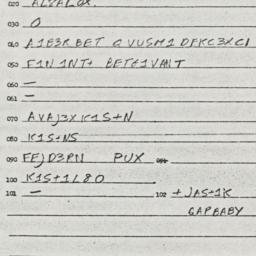 020 ALVALOX.
030 O
040 A1E3R BET QVUSM1 DFKC3XCI
050 F1N1NT+ BETE1VANT
060 —
061 —
070 AVAJ3XK1S+N
080 K1S+NS
090 FFJD3RN PUX 091
100 K1S+1L80
101 — 102 +JAS+1K
GAPBABY